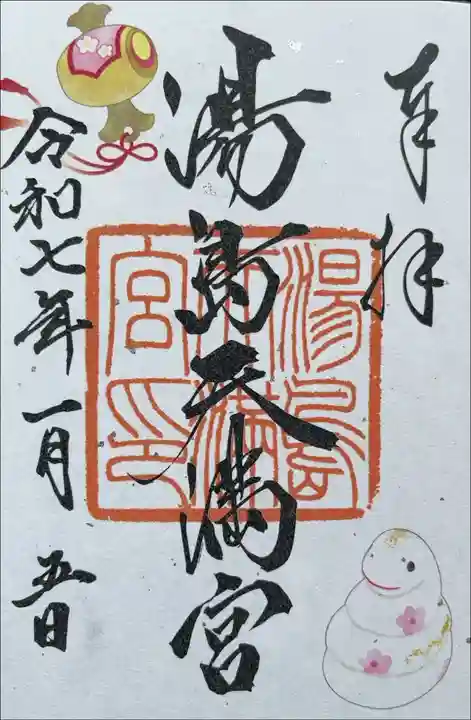 奉拝
湯島天満宮
湯島天満宮印
令和七年一月五日